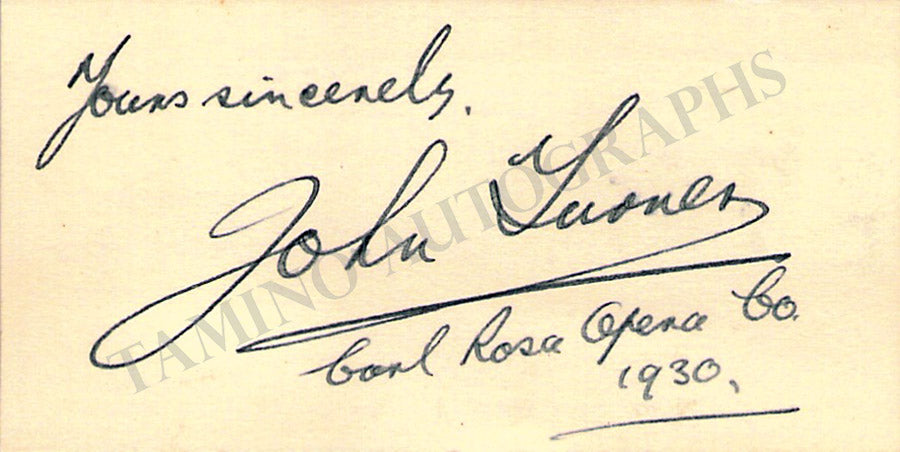 Yours sincerely.
John Turner
Carl Rosa Opera Co.
1930.
TAMINO AUTOGRAPHS